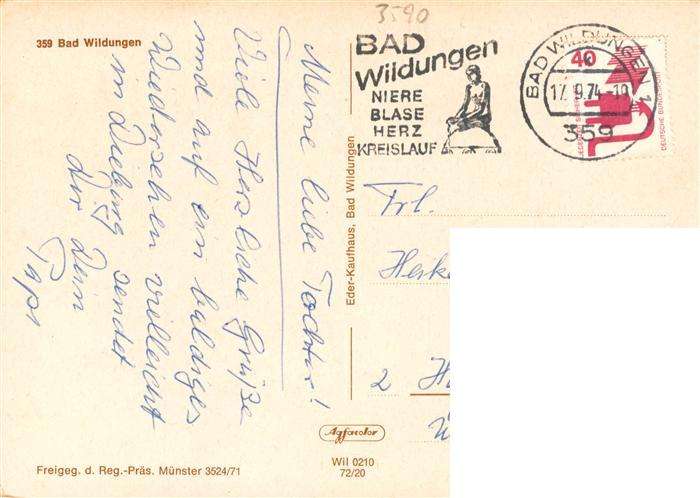 3590
359 Bad Wildungen
BAD
Wildungen
NIERE
BLASE
HERZ
KREISLAUF
BAD WILDUNGEN 1
17.9.74-19
359
40
DEUTSCHE BUNDESPOST
Meine liebe Tochter!
Viele Herzliche Grüße
und auf ein baldiges
Wiedersehen vielleicht
im sendet
dir Dein
Paps
Eder-Kaufhaus, Bad Wildungen
Frl.
2 H
Agfacolor
Wil 0210
72/20
Freigeg. d. Reg.-Präs. Münster 3524/71